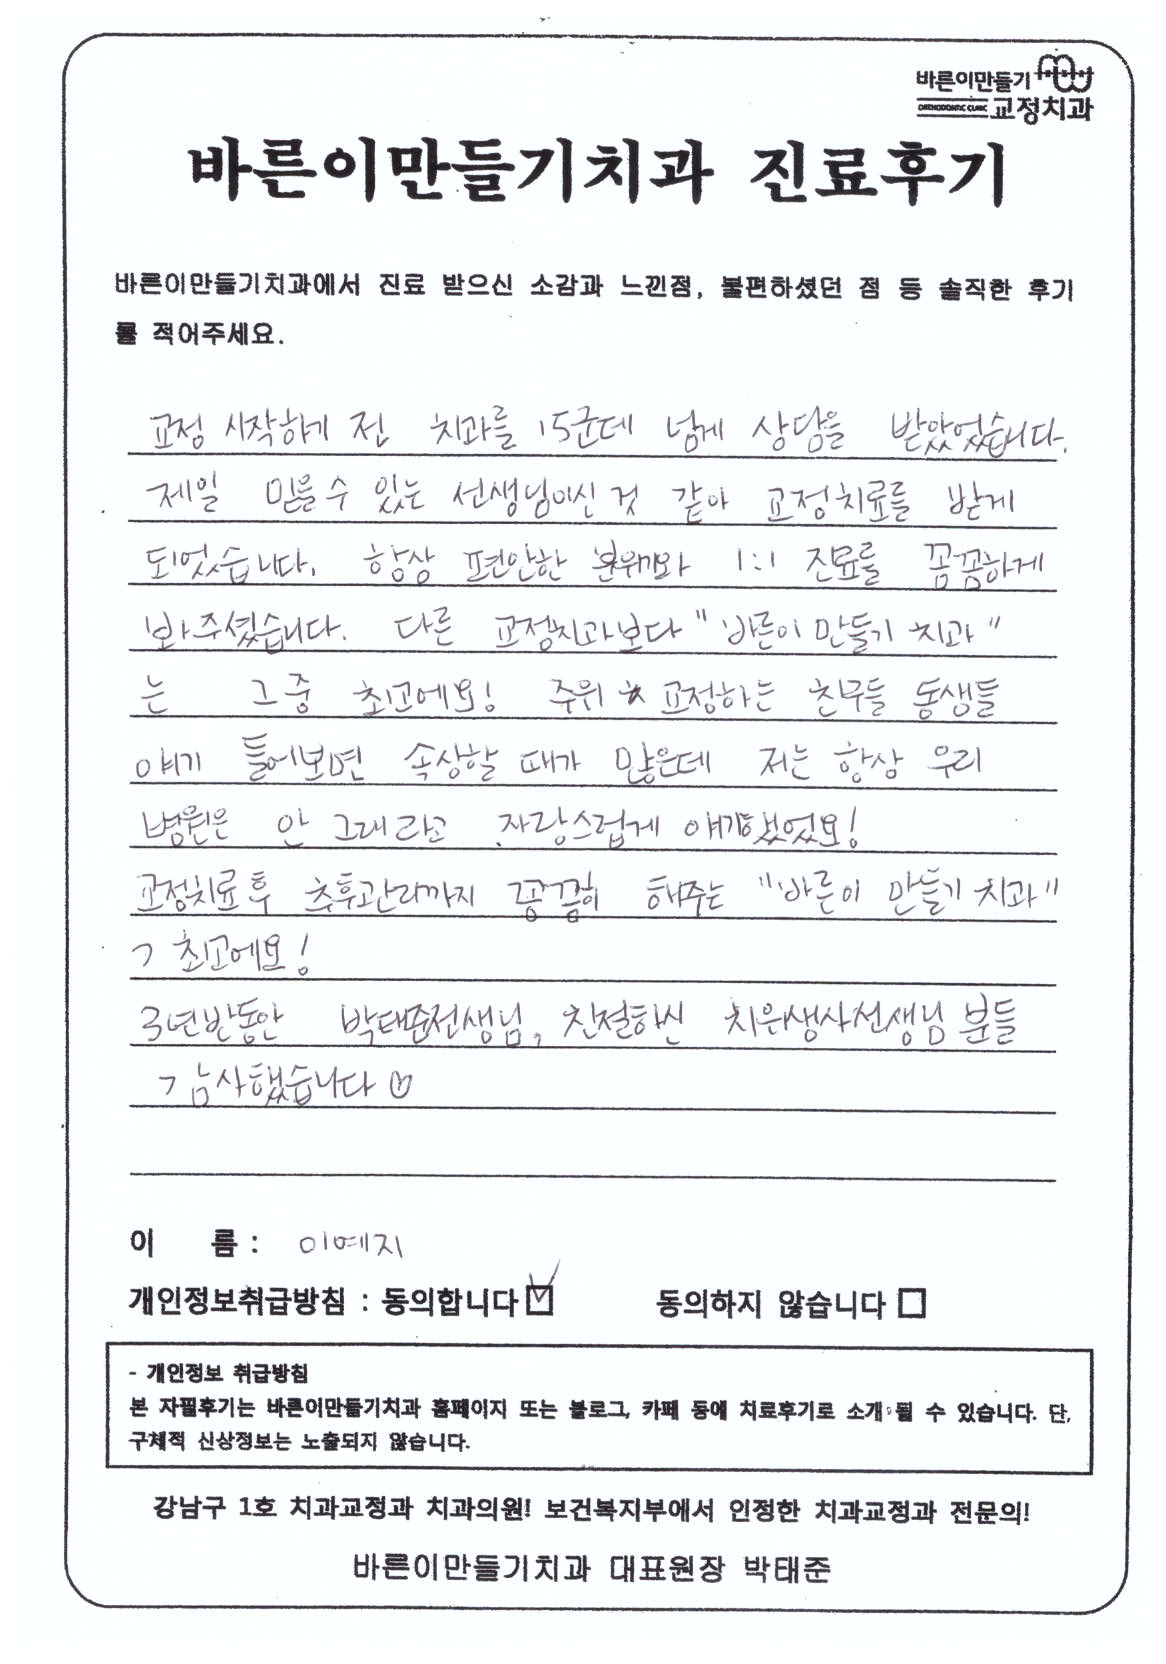 바른이만들기
ORTHODONTIC CLINIC 교정치과
바른이만들기치과 진료후기
바른이만들기치과에서 진료 받으신 소감과 느낀점, 불편하셨던 점 등 솔직한 후기
를 적어주세요.
교정 시작하기 전 치과를 15군데 넘게 상담을 받았었습니다.
제일 믿을 수 있는 선생님이신 것 같아 교정치료를 받게
되었습니다. 항상 편안한 분위기와 1:1 진료를 꼼꼼하게
봐주셨습니다. 다른 교정치과보다 "바른이 만들기 치과"
는 그 중 최고에요! 주위 교정하는 친구들 동생들
얘기 들어보면 속상할 때가 많은데 저는 항상 우리
병원은 안 그래 라고 자랑스럽게 얘기했었요!
교정치료 후 추후관리까지 꼼꼼히 해주는 "바른이 만들기 치과"
ㄱ 최고에요!
3년반동안 박태준선생님, 친절하신 치위생사선생님 분들
ㄱ 감사했습니다 ♡
이 름 : 이예지
개인정보취급방침 : 동의합니다 ☑ 동의하지 않습니다 □
- 개인정보 취급방침
본 자필후기는 바른이만들기치과 홈페이지 또는 블로그, 카페 등에 치료후기로 소개 될 수 있습니다. 단,
구체적 신상정보는 노출되지 않습니다.
강남구 1호 치과교정과 치과의원! 보건복지부에서 인정한 치과교정과 전문의!
바른이만들기치과 대표원장 박태준